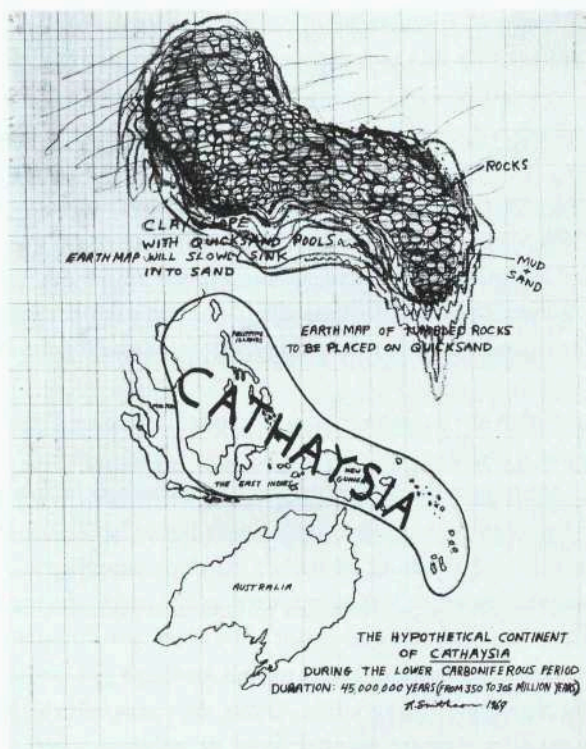 ROCKS
CLAY SLOPE
WITH QUICKSAND POOLS
EARTH MAP WILL SLOWLY SINK
IN TO SAND
MUD
+
SAND
EARTH MAP OF TUMBLED ROCKS
TO BE PLACED ON QUICKSAND
PHILIPPINE
ISLANDS
CATHAYSIA
NEW
GUINEA
THE EAST INDIES
AUSTRALIA
THE HYPOTHETICAL CONTINENT
OF CATHAYSIA
DURING THE LOWER CARBONIFEROUS PERIOD
DURATION: 45,000,000 YEARS (FROM 350 TO 305 MILLION YEARS)
R. Smithson 1969